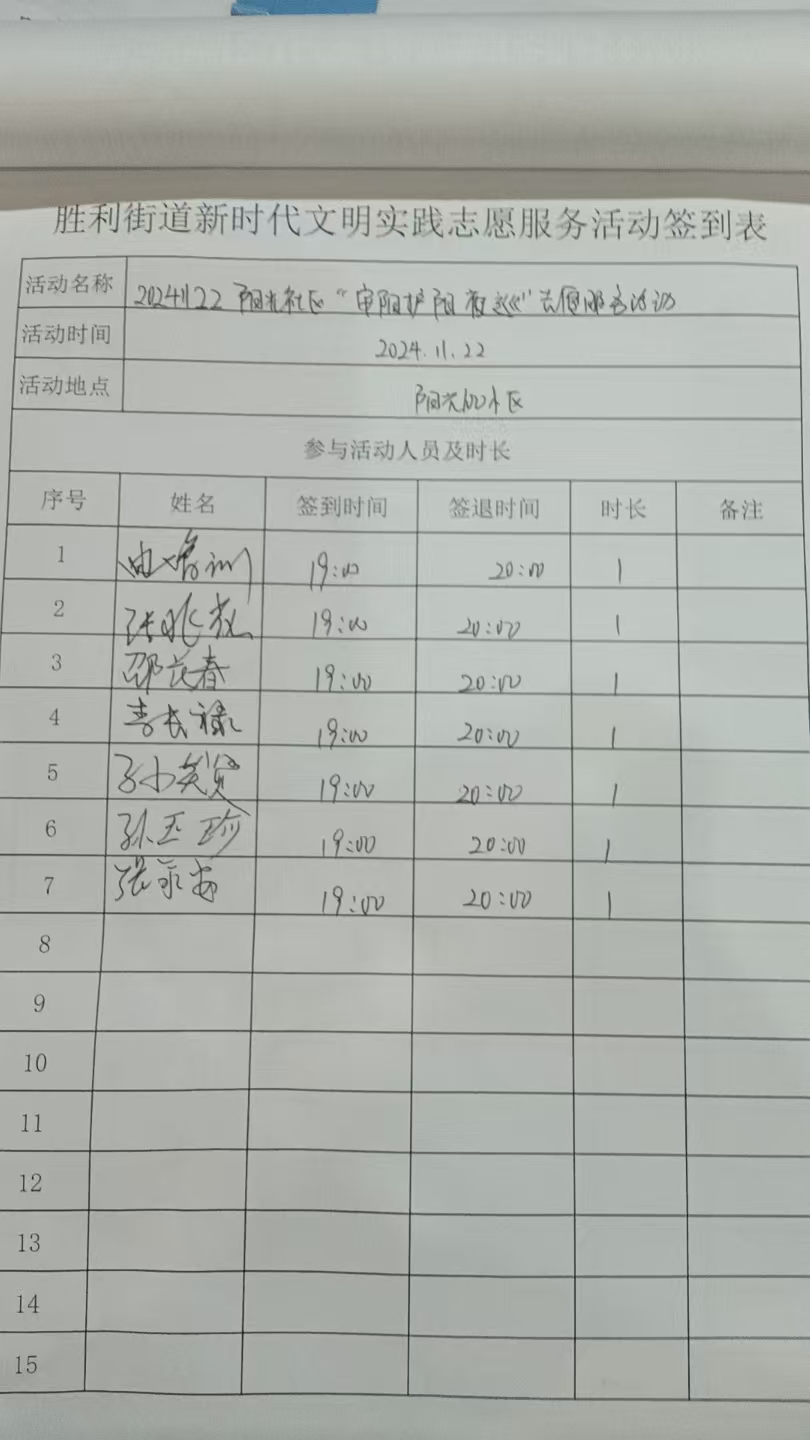 胜利街道新时代文明实践志愿服务活动签到表
活动名称 20241122 阳光社区“ 护阳夜巡”志愿服务活动
活动时间 2024.11.22
活动地点 阳光 小区
参与活动人员及时长
序号 姓名 签到时间 签退时间 时长 备注
1 19:00 20:00 1
2 张兆 19:00 20:00 1
3 邵 春 19:00 20:00 1
4 李长禄 19:00 20:00 1
5 19:00 20:00 1
6 孙玉珍 19:00 20:00 1
7 张永 19:00 20:00 1
8
9
10
11
12
13
14
15